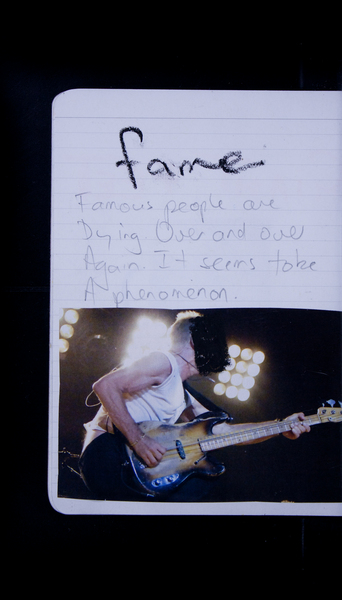 fame
Famous people are
Dying Over and over
Again. It seems to be
A phenomenon.